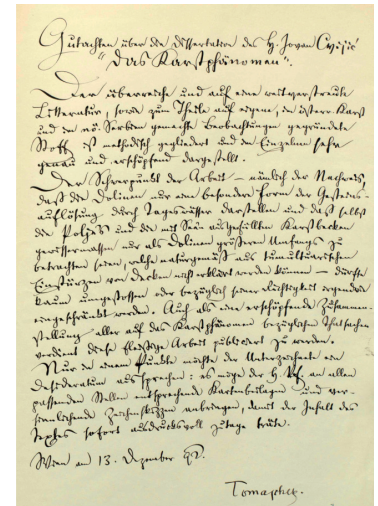 Gutachten über die Dissertation des H. Jovan Cvijić
"Das Karstphänomen".
Der überreiche und auf eine weit verstreute
Litteratur, sowie zum Theile auf eigene, im österr. Karst
und im nö. Serbien gemachte Beobachtungen gegründete
Stoff ist methodisch gegliedert und im Einzelnen sehr
genau und erschöpfend dargestellt.
Der Schwerpunkt der Arbeit – nämlich der Nachweis,
daß die Dolinen nur eine besondere Form der Gesteins-
auflösung durch Tageswässer darstellen und daß selbst
die Poljes und die mit Seen ausgefüllten Karstbecken
gewissermassen nur als Dolinen größern Umfangs zu
betrachten seien, welche naturgemäß aus tumultuarischen
Einstürzen von Decken nicht erklärt werden können – dürfte
kaum umgestossen oder bezüglich seiner Richtigkeit irgendwie
eingeschränkt werden. Auch als eine erschöpfende Zusammen-
stellung aller auf das Karstphänomen bezüglichen Thatsachen
verdient diese fleißige Arbeit publiciert zu werden.
Nur in einem Punkte möchte der Unterzeichnete ein
Desideratum aussprechen: es möge der H. Vf. an allen
passenden Stellen entsprechende Kartenbeilagen und ver-
sinnlichende Zeichnskizzen anbringen, damit der Inhalt des
Textes sofort ausdrucksvoll zutage träte.
Wien am 13. Dezember 92.
Tomaschek.